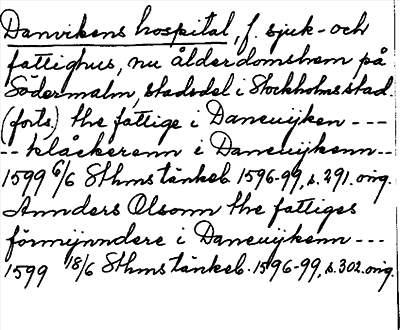 Danvikens hospital, f. sjuk- och
fattighus, nu ålderdomshem på
Södermalm, stadsdel i Stockholms stad.
(forts.) the fattige i Daneuijken ---
-- klåckerenn i Daneuijkenn--
1599 6/6 Sthms tänkeb. 1596-99, s. 291. orig.
Annders Olsonn the fattiges
förmijnndere i Daneuijkenn ---
1599 18/6 Sthms tänkeb. 1596-99, s. 302. orig.